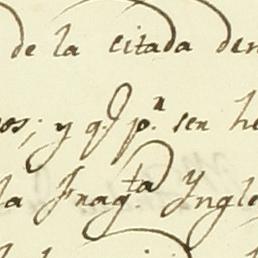 de la citada den
os; y q.e p.r sen he
la Frag.ta Ingle